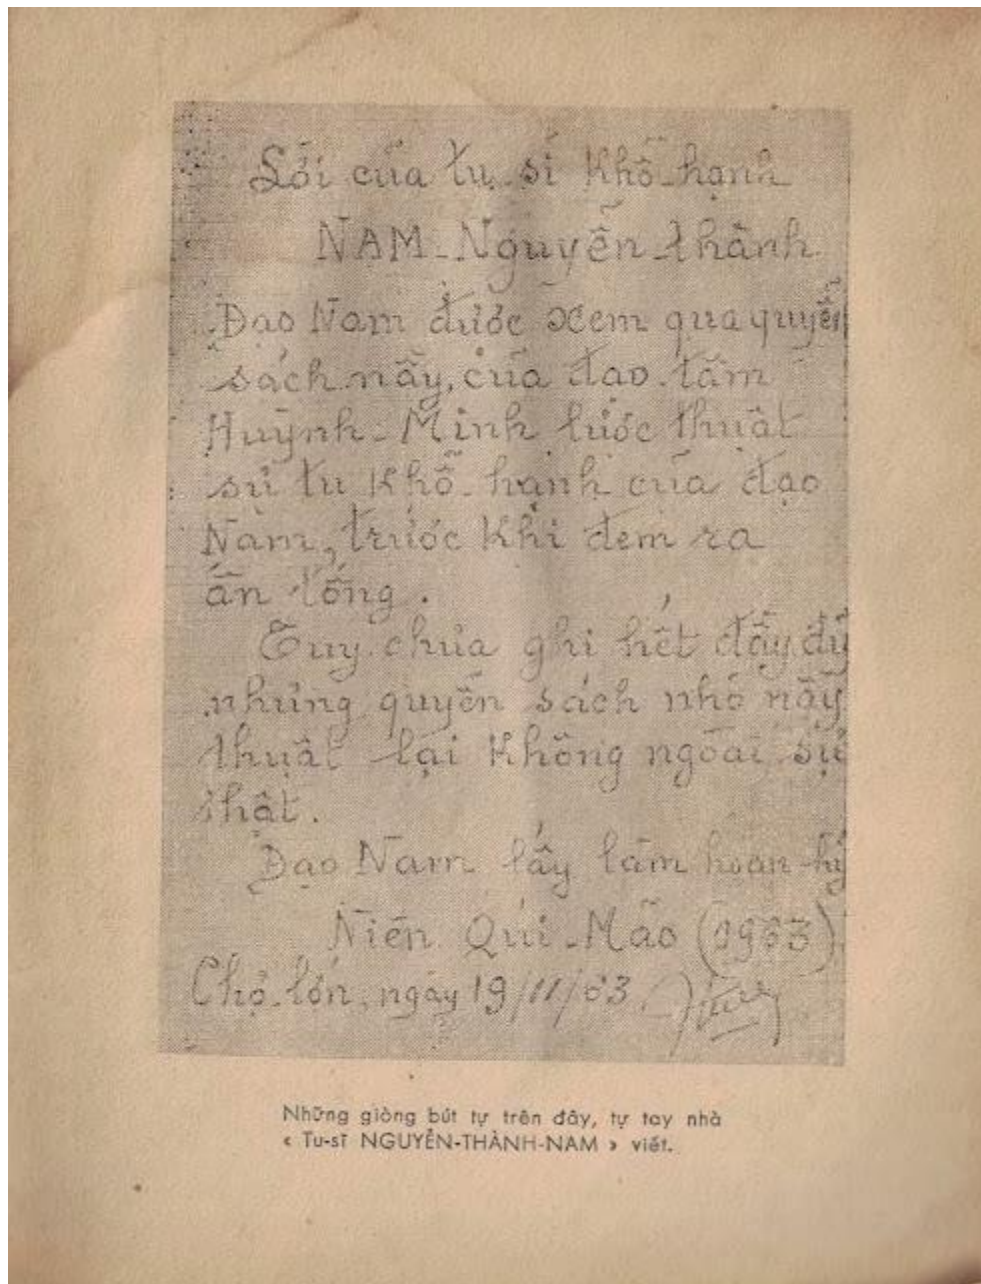 Lời của tu sĩ Khổ-hạnh
NAM-Nguyễn-thành
Đạo Nam được xem qua quyển
sách nầy, của đạo-tâm
Huỳnh-Minh lược thuật
sự tu Khổ-hạnh của đạo
Nam, trước khi đem ra
ấn tống.
Tuy chưa ghi hết đầy đủ
nhưng quyển sách nhỏ nầy
thuật lại không ngoài sự
thật.
Đạo Nam lấy làm hoan-hỷ
Niên Qúi-Mão (1963)
Chợ-lớn, ngày 19/11/63
Những giòng bút tự trên đây, tự tay nhà
« Tu-sĩ NGUYỄN-THÀNH-NAM » viết.